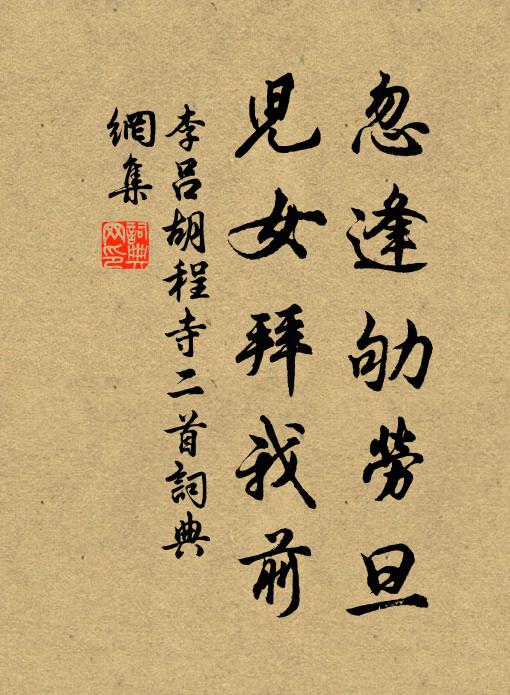 忽逢劬勞旦
兒女拜我前
李呂胡程寺二首詞典
網集
詞典網印